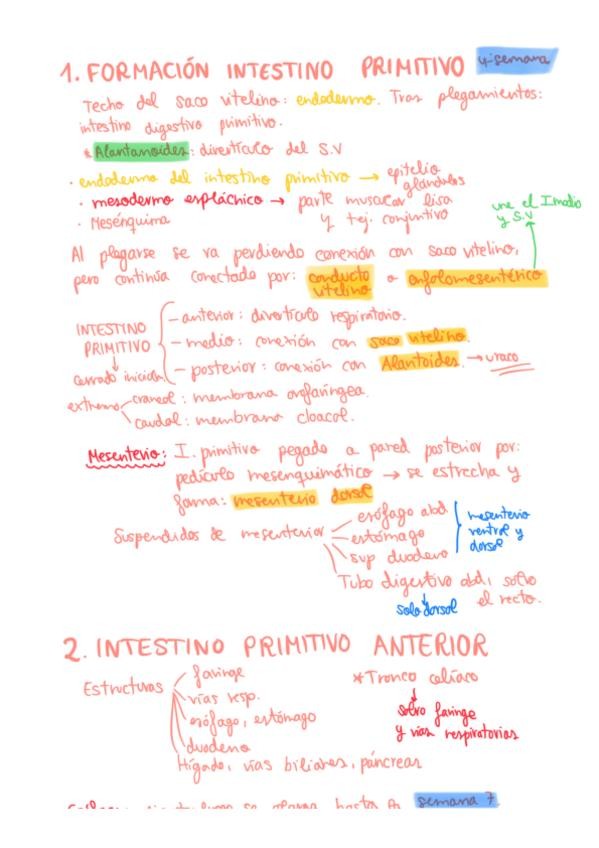 1. FORMACIÓN INTESTINO PRIMITIVO 4ªsemana
Techo del saco vitelino: endodermo. Tras plegamientos:
intestino digestivo primitivo.
* Alantanoides: divertículo del S.V
· endodermo del intestino primitivo → epitelio
glándulas
· mesodermo espláchico → parte muscular lisa
y tej. conjuntivo
· Mesénquima
une el I.medio
y S.V
Al plegarse se va perdiendo conexión con saco vitelino,
pero continúa conectado por: conducto
vitelino o onfalomesentérico
INTESTINO
PRIMITIVO
- anterior: divertículo respiratorio.
- medio: conexión con saco vitelino.
- posterior: conexión con Alantoides. → uraco
cerrado inicial
extremo craneal: membrana orofaríngea.
caudal: membrana cloacal.
Mesenterio: I. primitivo pegado a pared posterior por:
pedículo mesenquimático → se estrecha y
forma: mesenterio dorsal
Suspendidos de mesenterior
esófago abd
estómago
sup duodeno
mesenterio
ventral y
dorsal
Tubo digestivo abd, salvo
el recto.
solo dorsal
2. INTESTINO PRIMITIVO ANTERIOR
Estructuras
faringe
vías resp.
esófago, estómago
duodeno
Hígado, vías biliares, páncreas
*Tronco celíaco
salvo faringe
y vías respiratorias
hasta semana 7